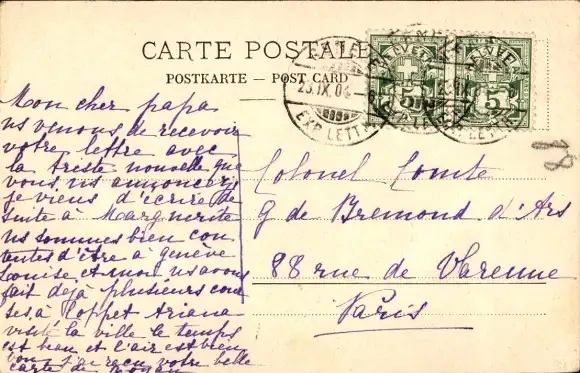 CARTE POSTALE
POSTKARTE — POST CARD
GENÈVE
23.IX.04
EXP. LETT.
HELVETIA
5
HELVETIA
5
Mon cher papa
ns venons de recevoir
votre lettre avec
la triste nouvelle que
vous ns annoncez
je viens d'écrire de
suite à Marguerite
ns sommes bien con
tentes d'être à genève
Louise et moi ns avons
fait déjà plusieurs cour
ses, à Coppet Ariana
visité la ville le temps
est beau et l'air est bien
bon j'ai reçu votre belle
carte de
Colonel Comte
G de Bremond d'Ars
88 rue de Varenne
Paris
88